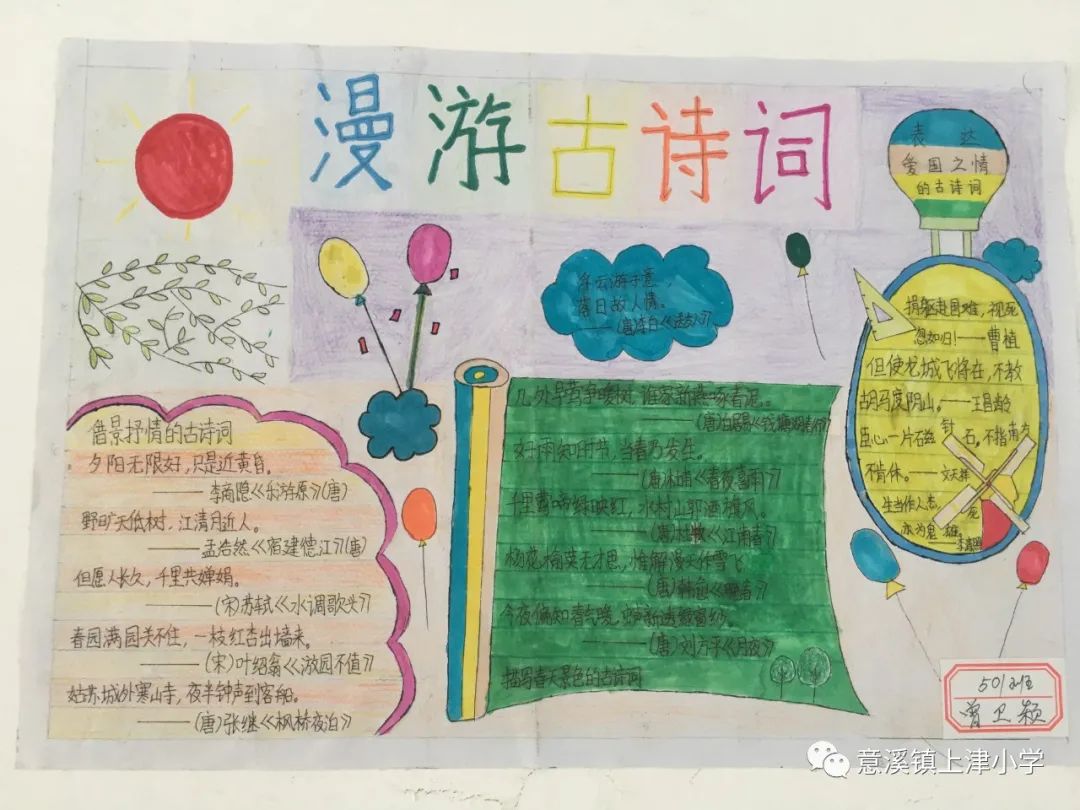 漫游古诗词
表达
爱国之情
的古诗词
浮云游子意，
落日故人情。
——(唐)李白《送友人》
捐躯赴国难，视死
忽如归！——曹植
但使龙城飞将在，不教
胡马度阴山。——王昌龄
臣心一片磁针石，不指南方
不肯休。——文天祥
生当作人杰，死
亦为鬼雄。
——李清照
借景抒情的古诗词
夕阳无限好，只是近黄昏。
——李商隐《乐游原》(唐)
野旷天低树，江清月近人。
——孟浩然《宿建德江》(唐)
但愿人长久，千里共婵娟。
——(宋)苏轼《水调歌头》
春园满园关不住，一枝红杏出墙来。
——(宋)叶绍翁《游园不值》
姑苏城外寒山寺，夜半钟声到客船。
——(唐)张继《枫桥夜泊》
几处早莺争暖树，谁家新燕啄春泥。
——(唐)白居易《钱塘湖春行》
好雨知时节，当春乃发生。
——(唐)《春夜喜雨》
千里莺啼绿映红，水村山郭酒旗风。
——(唐)杜牧《江南春》
杨花榆荚无才思，惟解漫天作雪飞
——(唐)韩愈《晚春》
今夜偏知春气暖，虫声新透绿窗纱。
——(唐)刘方平《月夜》
描写春天景色的古诗词
501班
曾卫颖
意溪镇上津小学